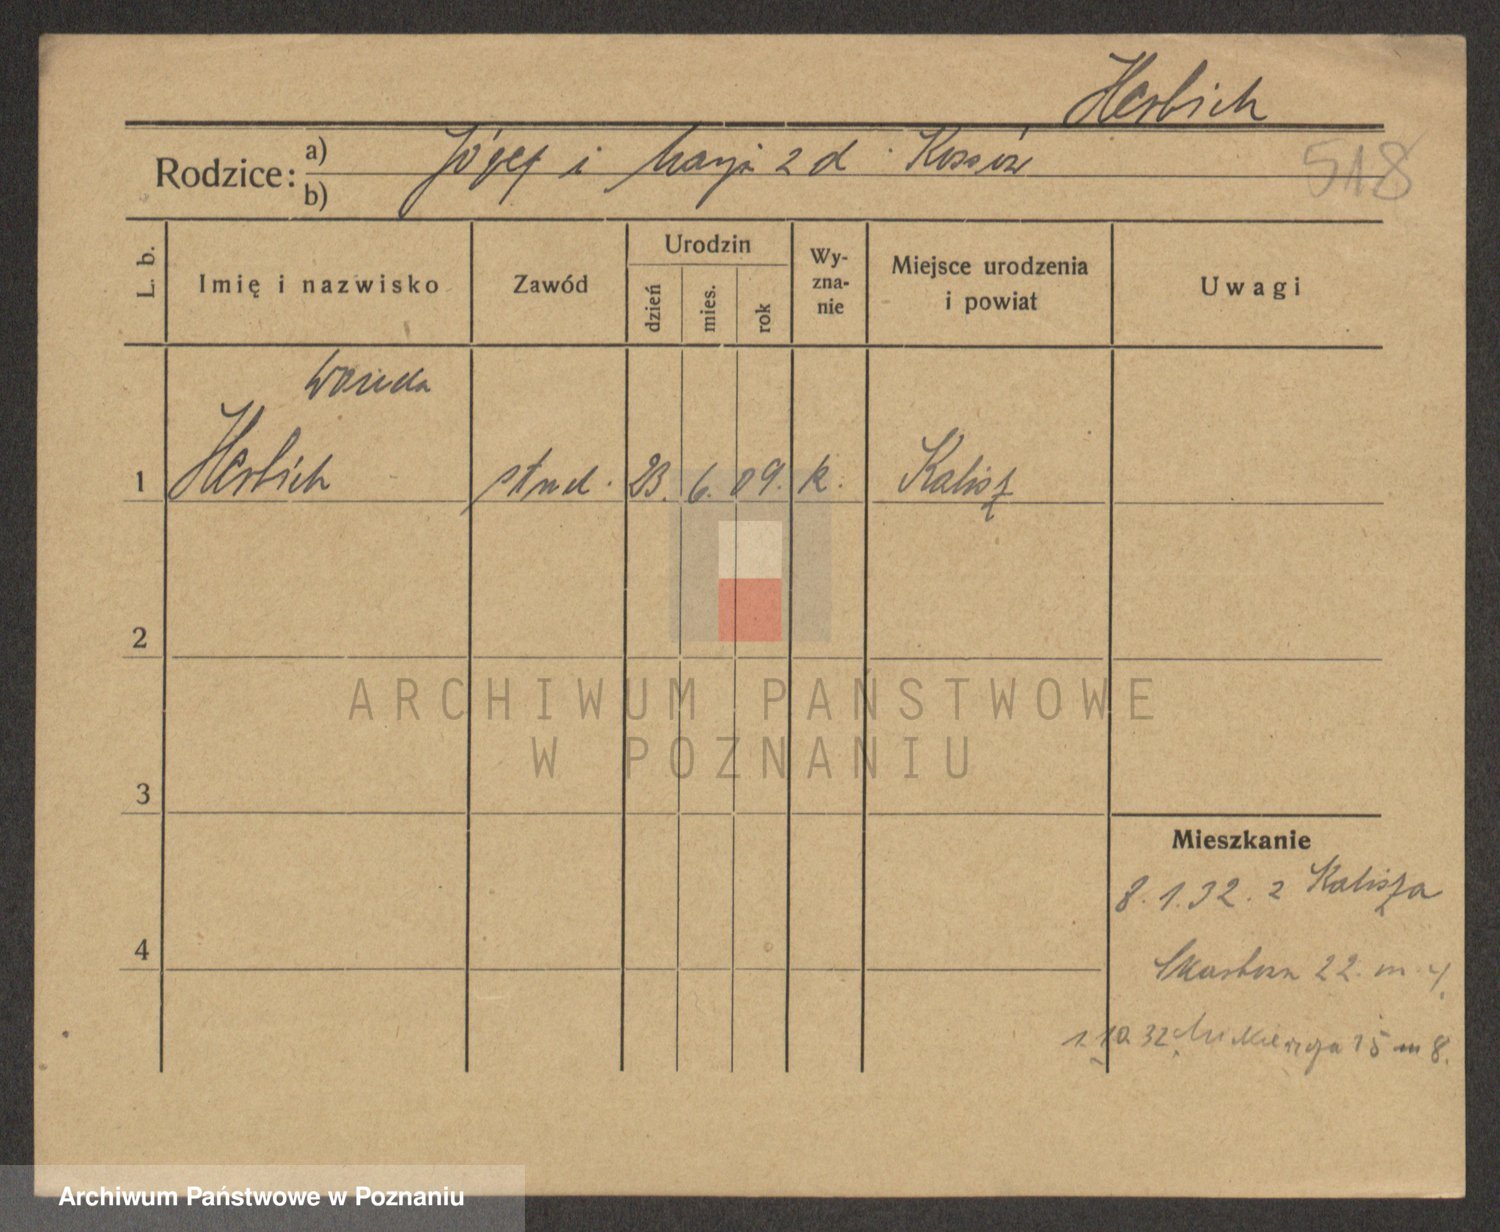 Herbich
Rodzice: a) Józef i Marja z d.
b)
518
L. b.
Imię i nazwisko
Zawód
Urodzin
dzień
mies.
rok
Wy-
zna-
nie
Miejsce urodzenia
i powiat
Uwagi
Wanda
1 Herbich stud. 23. 6. 09. k. Kalisz
2
ARCHIWUM PAŃSTWOWE
W POZNANIU
3
Mieszkanie
8.1.32. z Kalisza
4
22. m. 4
1.10.32 15 m 8.
Archiwum Państwowe w Poznaniu